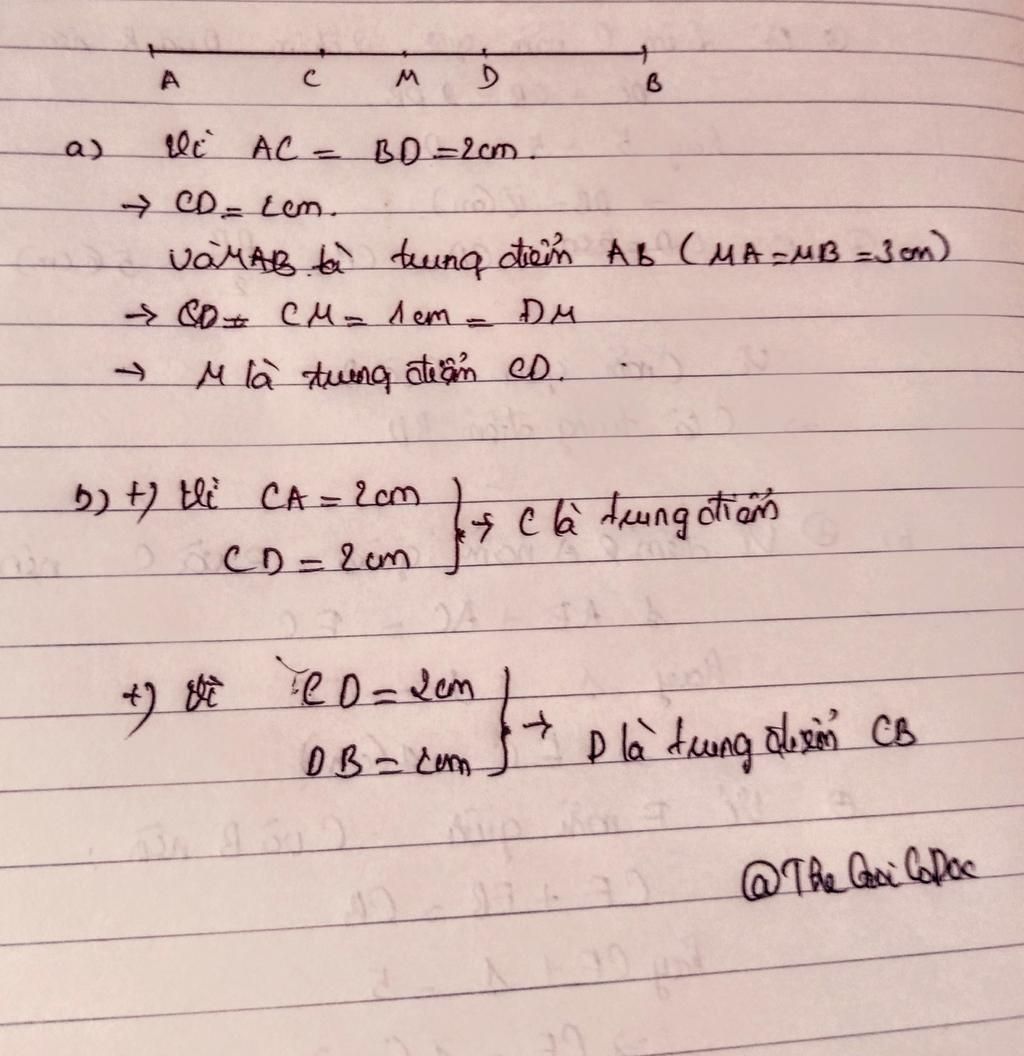 A C M D B
a) Vì AC = BD = 2cm.
→ CD = 2cm.
Và M là trung điểm AB (MA = MB = 3cm)
→ CM = 1cm = DM
→ M là trung điểm CD.
b) +) Vì CA = 2cm
CD = 2cm } → C là trung điểm
+) Vì CD = 2cm
DB = 2cm } → D là trung điểm CB